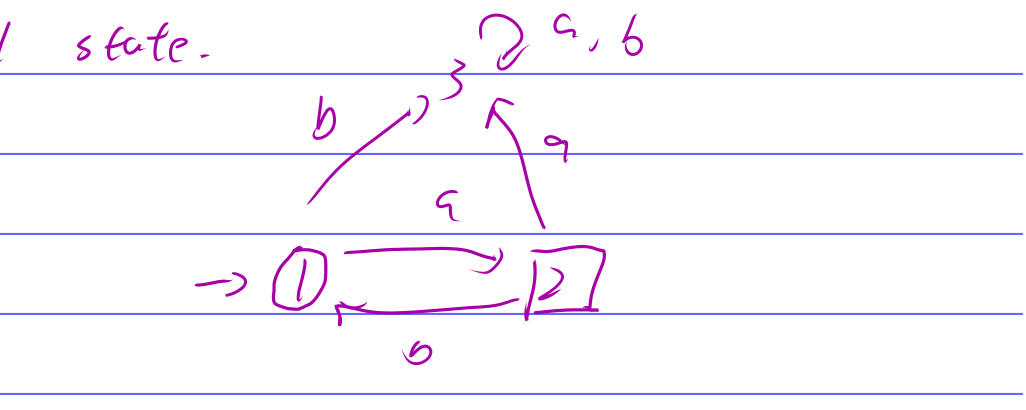 state.
a, b
3
b
a
a
1
2
b